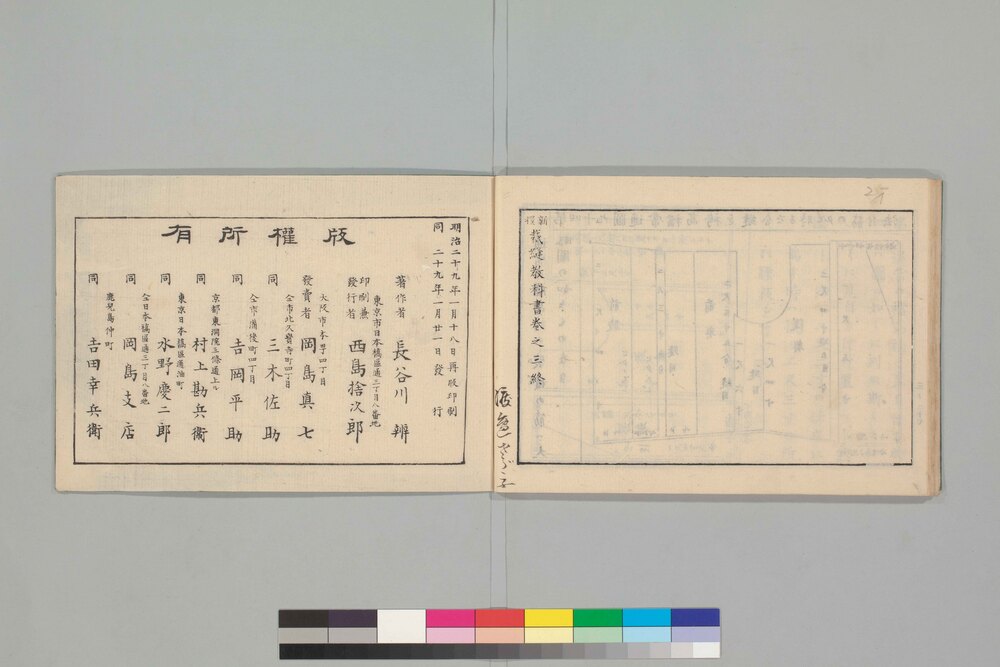 裁縫教科書卷之三終
版權所有
明治二十九年一月十八日再版印刷
同 二十九年一月廿一日發行
著作者 長谷川 辨
東京市日本橋區通三丁目八番地
印刷兼發行者 西島捨次郎
大阪市本町四丁目
發賣者 岡島真七
仝市北久寳寺町四丁目
同 三木佐助
仝市備後町四丁目
同 吉岡平助
京都東洞院三條通上ル
同 村上勘兵衛
東京日本橋區通油町
同 水野慶二郎
仝日本橋區通三丁目八番地
同 岡島支店
鹿兒島仲町
同 吉田幸兵衛